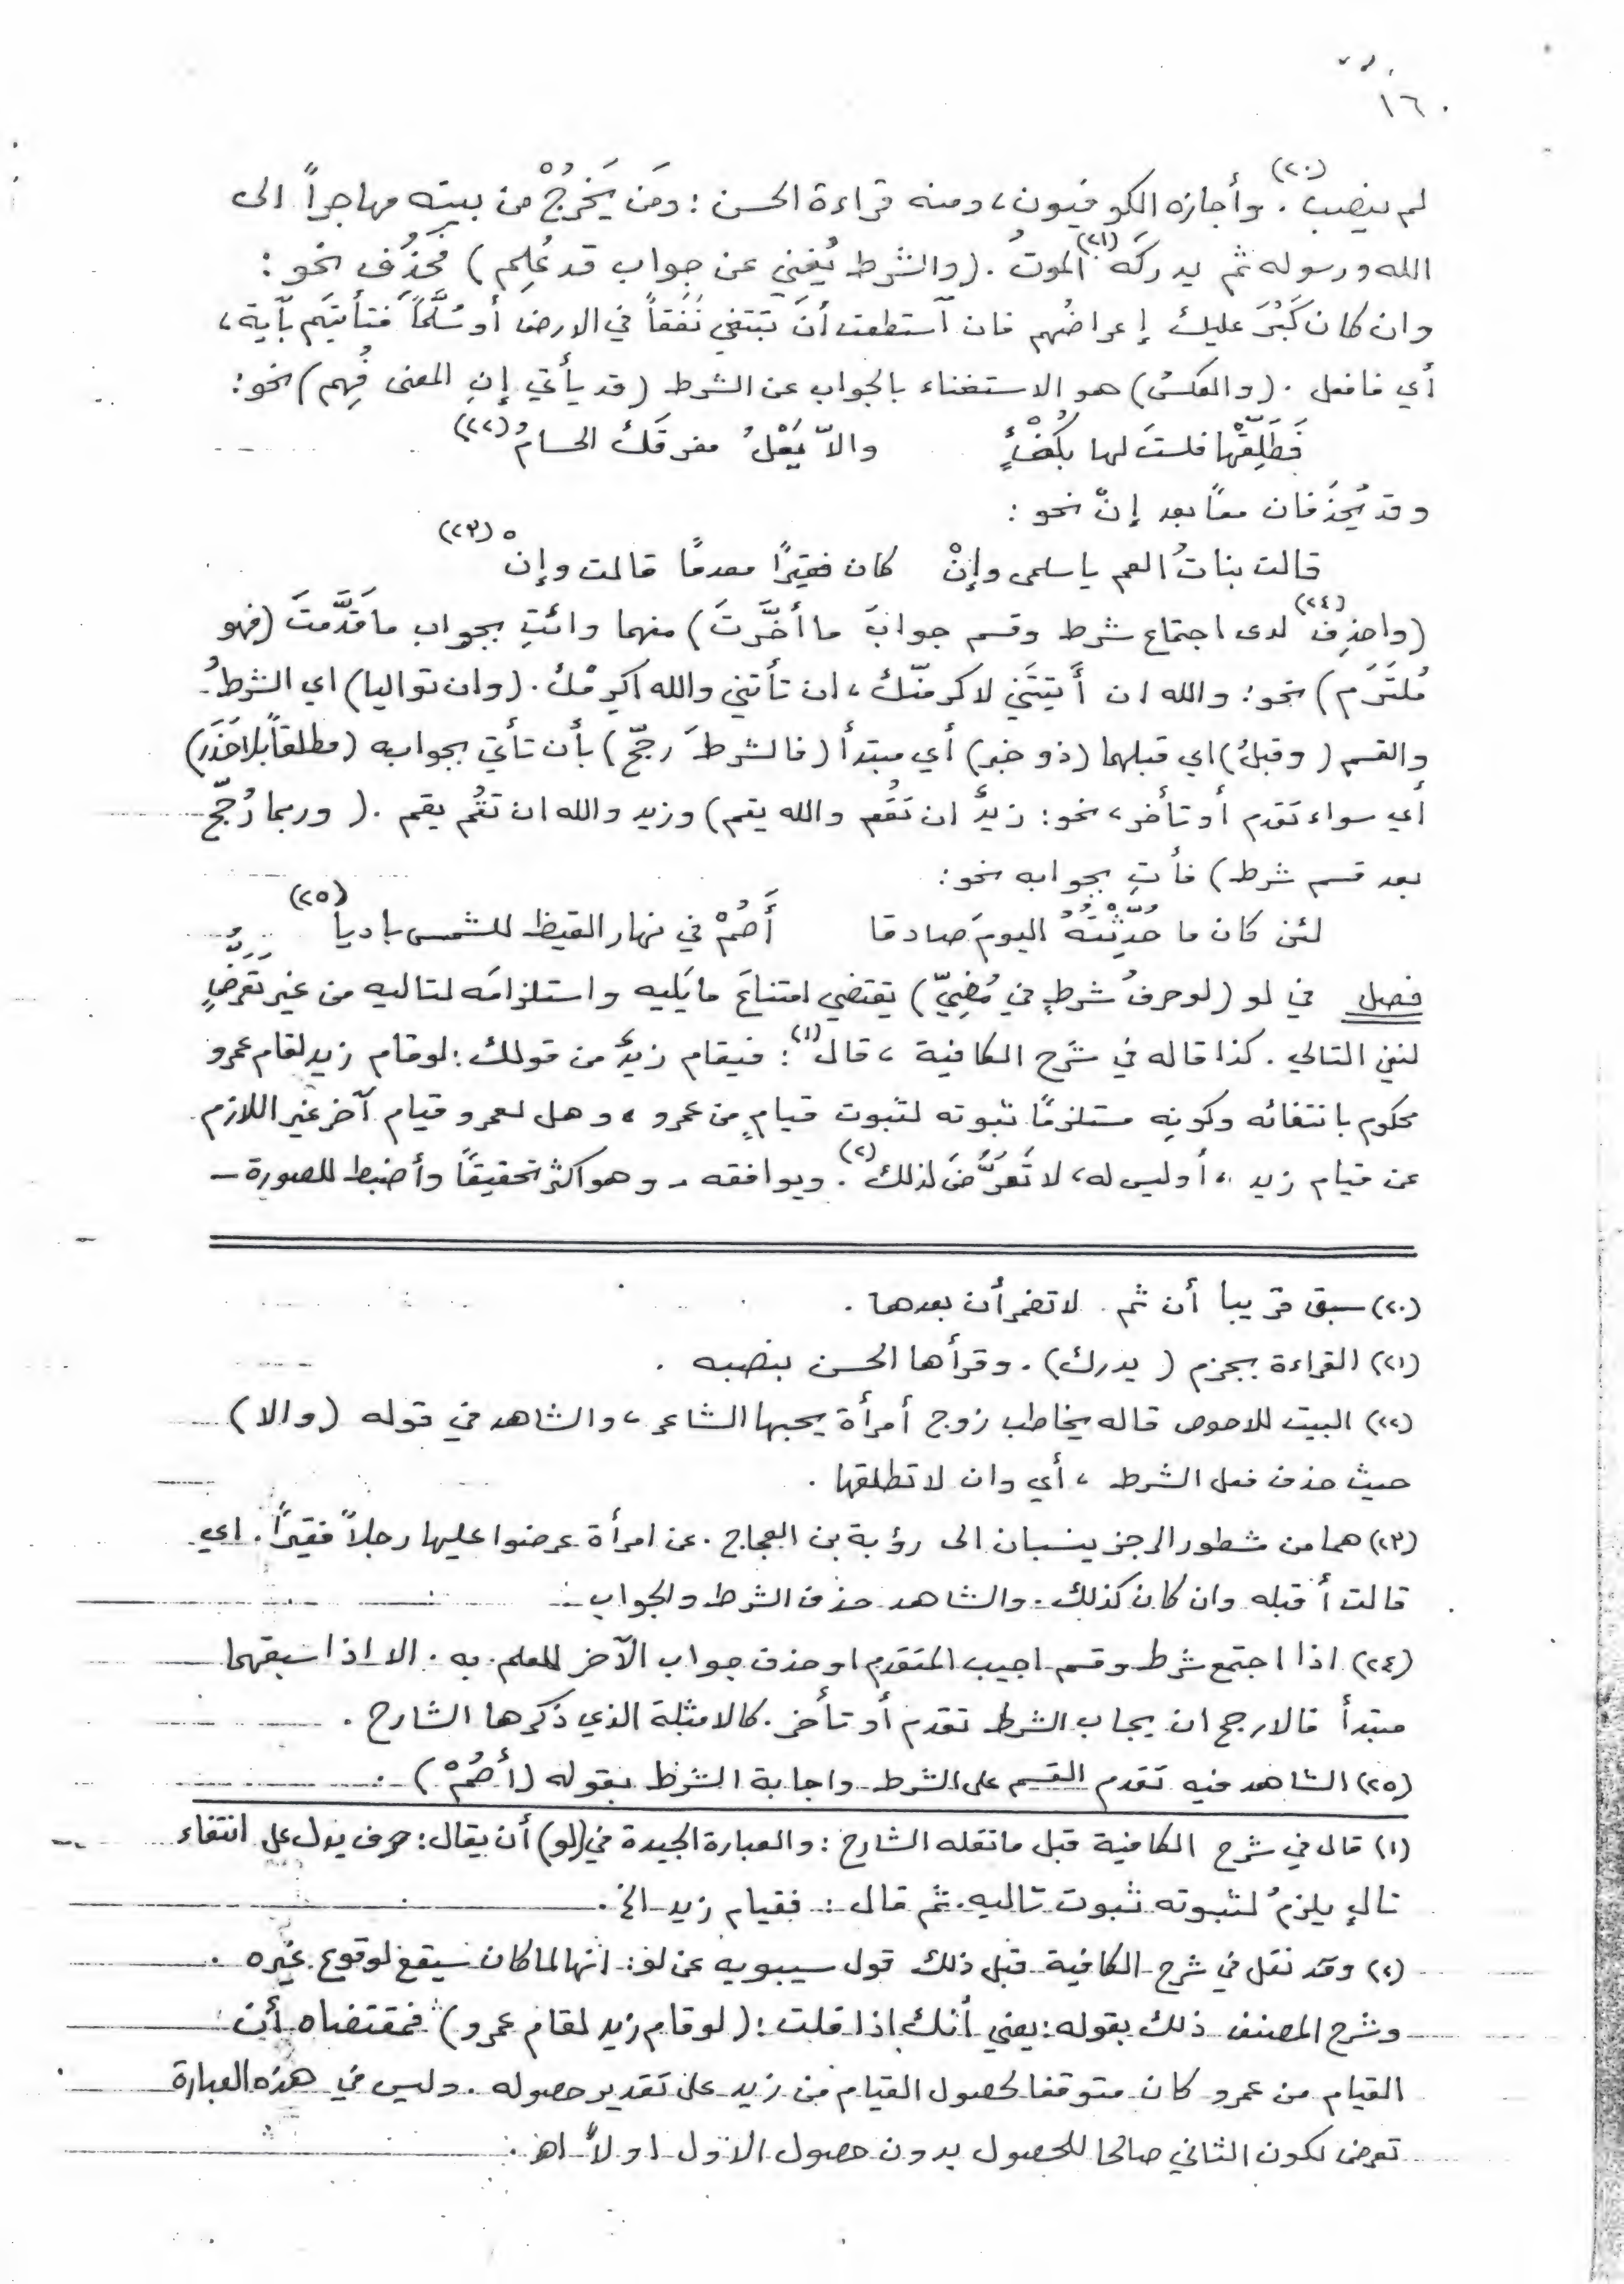 ١٦٠
لم ينصب (٢٠). وأجازه الكوفيون، ومنه قراءة الحسن: ومَن يَخرُجْ من بيته مهاجراً الى
الله ورسوله ثم يدركَه (٢١) الموتُ. (والشرط يُغني عن جواب قد عُلِم) فحُذِف نحو:
وان كان كَبُرَ عليك إعراضُهم فان آستطعت أنَ تبتغي نَفَقاً في الارض أو سُلَّماً فتأتيَهم بآية،
أي فافعل. (والعكسُ) هو الاستغناء بالجواب عن الشرط (قد يأتي إنِ المعنى فُهِم) نحو:
فَطَلِّقْها فلستَ لها بكُفْءٍ والاّ يَعْلُ مفرقَك الحسامُ (٢٢)
وقد يُحذَفان معاً بعد إنْ نحو:
قالت بناتُ العم يا سلمى وإنْ كان فقيرًا معدمًا قالت وإنْ (٢٣)
(واحذِف (٢٤) لدى اجتماع شرط وقسم جوابَ ما أخَّرتَ) منهما وائتِ بجواب ما قدَّمتَ (فهو
مُلتَزَم) نحو: والله ان أَتيتَني لاكرمنّك، ان تأتني والله اكرمْك. (وان تواليا) اي الشرطُ
والقسم (وقبلُ) اي قبلهما (ذو خبر) أي مبتدأ (فالشرطَ رجِّح) بأن تأتي بجوابه (مطلقاً بلا حَذَر)
أي سواء تقدم أو تأخر، نحو: زيدٌ ان تَقُم والله يقم) وزيد والله ان تقُم يقم. (وربما رُجِّح
بعد قسم شرط) فأتِ بجوابه نحو:
لئن كان ما حُدِّثْتَهُ اليومَ صادقا أَصُمْ في نهار القيظ للشمس باديا (٢٥)
فصل في لو (لو حرفُ شرطٍ في مُضِيّ) يقتضي امتناعَ ما يَليه واستلزامَه لتاليه من غير تعرُّضٍ
لنفي التالي. كذا قاله في شرح الكافية، قال (١): فيقام زيدٌ من قولك: لو قام زيد لقام عمرو
محكوم بانتفائه وكونِه مستلزمًا ثبوته لثبوت قيامٍ من عمرو، وهل لعمرو قيام آخر غير اللازم
عن قيام زيد، أو ليس له، لا تَعَرُّضَ لذلك (٢). ويوافقه - وهو اكثر تحقيقاً وأضبط للصورة -
(٢٠) سبق قريبا أن ثم لا تضمر أن بعدها.
(٢١) القراءة بجزم (يدرك). وقرأها الحسن بنصبه.
(٢٢) البيت للاحوص قاله يخاطب زوج أمرأة يحبها الشاعر، والشاهد في قوله (والا)
حيث حذف فعل الشرط، أي وان لا تطلقها.
(٢٣) هما من شطور الرجز ينسبان الى رؤبة بن العجاج. عن امرأة عرضوا عليها رجلاً فقيراً. اي
قالت أقبله وان كان كذلك. والشاهد حذف الشرط والجواب.
(٢٤) اذا اجتمع شرط وقسم اجيب المتقدم او حذف جواب الآخر للعلم به. الا اذا سبقهما
مبتدأ فالارجح ان يجاب الشرط تقدم أو تأخر. كالامثلة الذي ذكرها الشارح.
(٢٥) الشاهد فيه تقدم القسم على الشرط واجابة الشرط بقوله (أصُمْ).
(١) قال في شرح الكافية قبل ما نقله الشارح: والعبارة الجيدة في (لو) أن يقال: حرف يدل على انتفاء
تالٍ يلزمُ لثبوته ثبوت تاليه. ثم قال: فقيام زيد الخ.
(٢) وقد نقل في شرح الكافية قبل ذلك قول سيبويه عن لو: انها لما كان سيقع لوقوع غيره.
وشرح المصنف ذلك بقوله: يعني أنك اذا قلت: (لو قام زيد لقام عمرو) فمقتضاه أن
القيام من عمرو كان متوقفا لحصول القيام من زيد على تقدير حصوله. وليس في هذه العبارة
تعرض لكون الثاني صالحا للحصول بدون حصول الاول او لا اهـ.